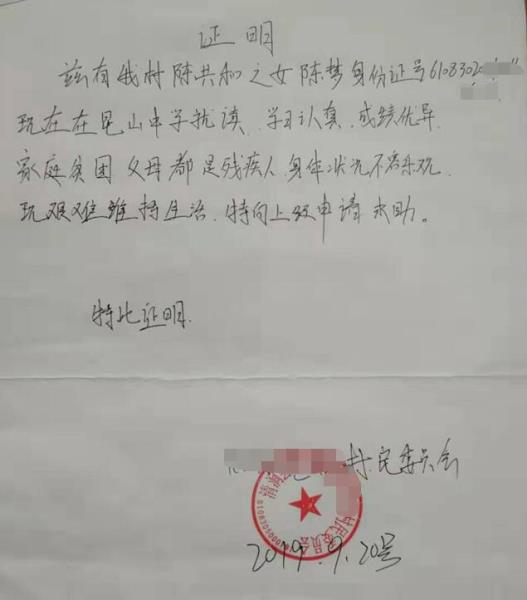 证明
兹有我村陈共和之女陈梦身份证号6108302
现在在昆山中学就读,学习认真,成绩优异.
家庭贫困 父母都是残疾人,身体状况不容乐观,
现艰难维持生活,特向上级申请求助。
特此证明.
村民委员会
村民委员会
2019.9.20号